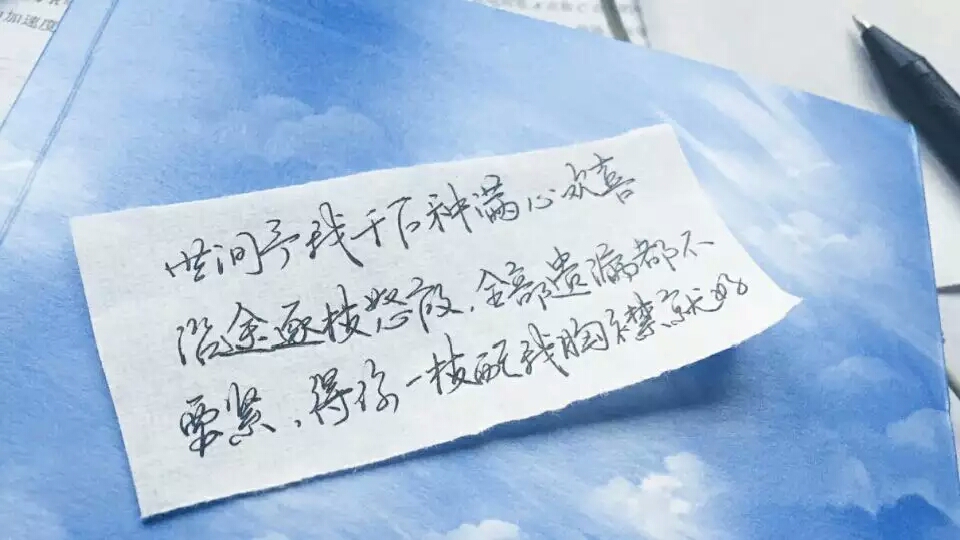 加速度
世间予我千百种满心欢喜
沿途逐枝怒放，全部遗漏都不
要紧，得你一枝配我胸襟就好